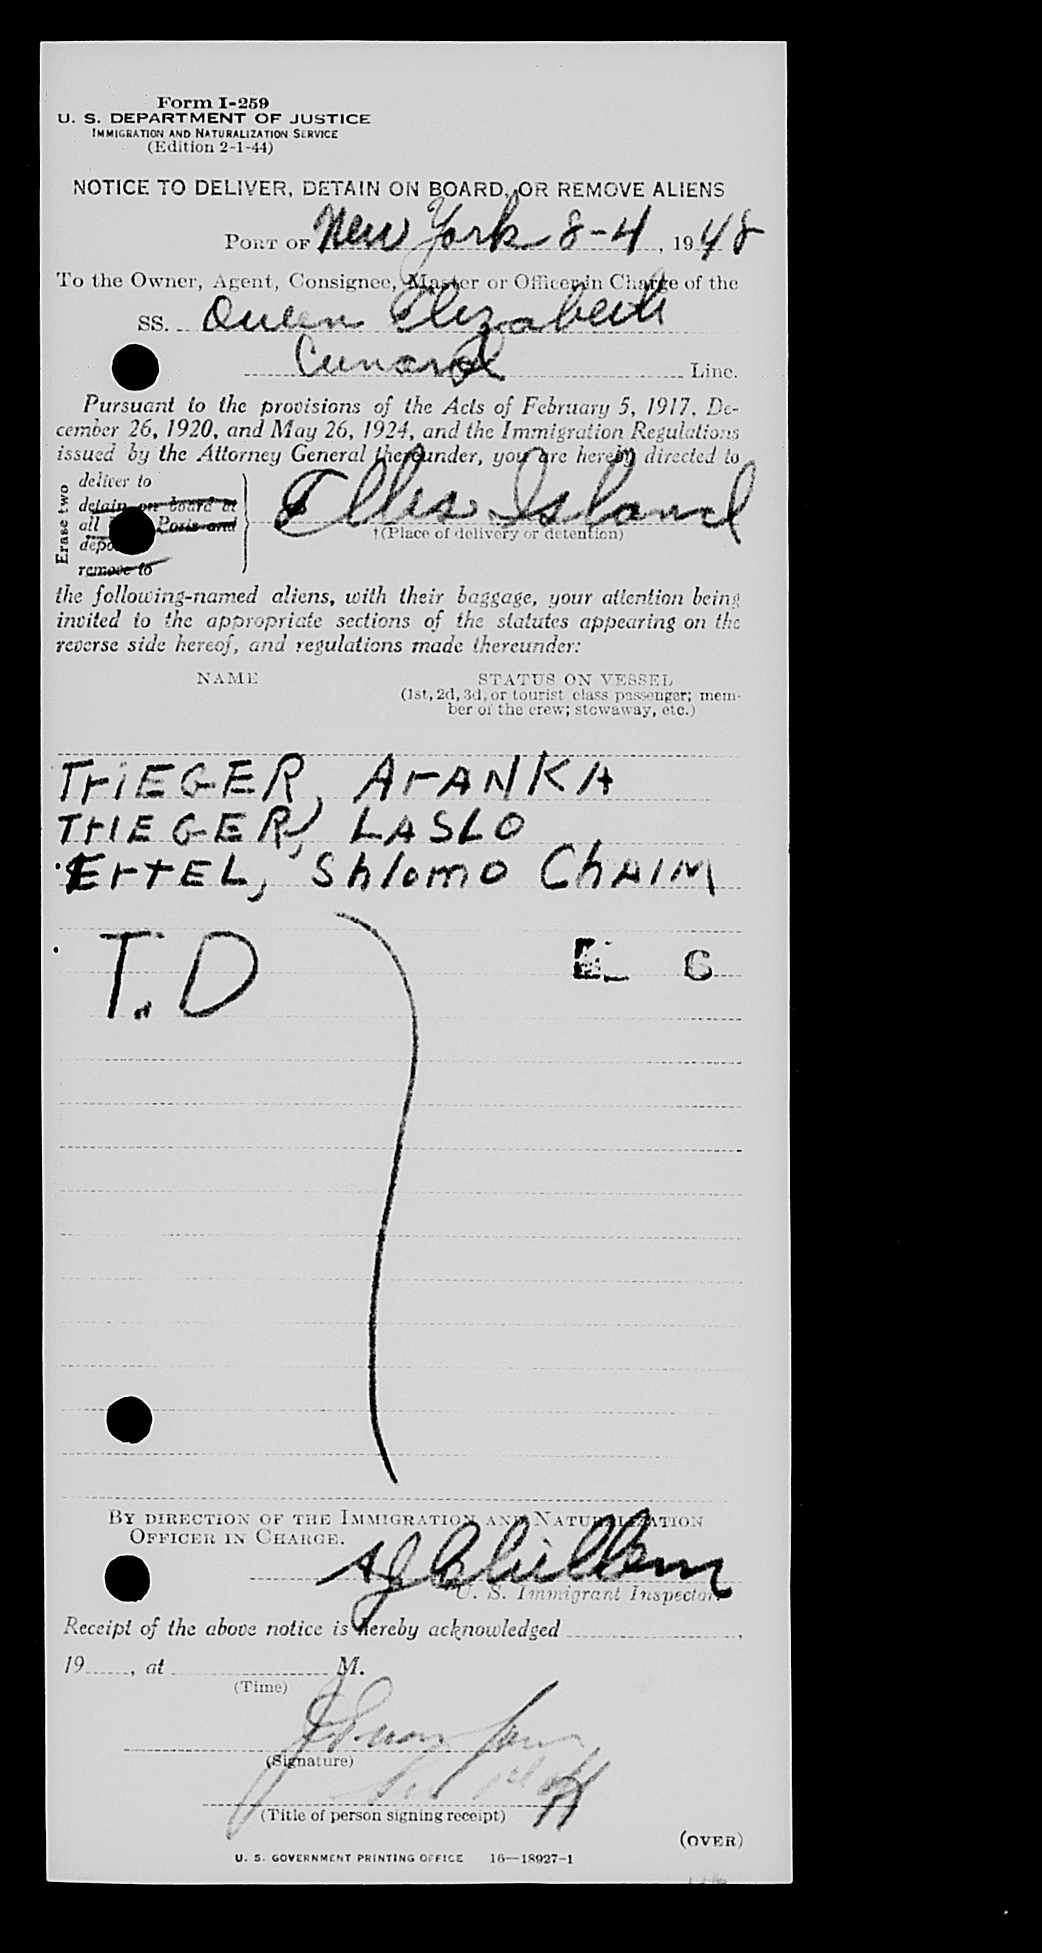 Form I-259
U. S. DEPARTMENT OF JUSTICE
IMMIGRATION AND NATURALIZATION SERVICE
(Edition 2-1-44)
NOTICE TO DELIVER, DETAIN ON BOARD, OR REMOVE ALIENS
PORT OF New York 8-4, 1948
To the Owner, Agent, Consignee, Master or Officer in Charge of the
SS. Queen Elizabeth
Cunard Line.
Pursuant to the provisions of the Acts of February 5, 1917, De-
cember 26, 1920, and May 26, 1924, and the Immigration Regulations
issued by the Attorney General thereunder, you are hereby directed to
Erase two
deliver to
detain on board at
all Ports and
remove to
Ellis Island
†(Place of delivery or detention)
the following-named aliens, with their baggage, your attention being
invited to the appropriate sections of the statutes appearing on the
reverse side hereof, and regulations made thereunder:
NAME STATUS ON VESSEL
(1st, 2d, 3d, or tourist class passenger; mem-
ber of the crew; stowaway, etc.)
TriEGER, ArANKA
TrIEGER, LASLO
ErtEL, Shlomo ChAIM
T.D
BY DIRECTION OF THE IMMIGRATION AND NATURALIZATION
OFFICER IN CHARGE.
U. S. Immigrant Inspector.
Receipt of the above notice is hereby acknowledged ,
19 , at M.
(Time)
(Signature)
(Title of person signing receipt)
(OVER)
U. S. GOVERNMENT PRINTING OFFICE 16—18927-1